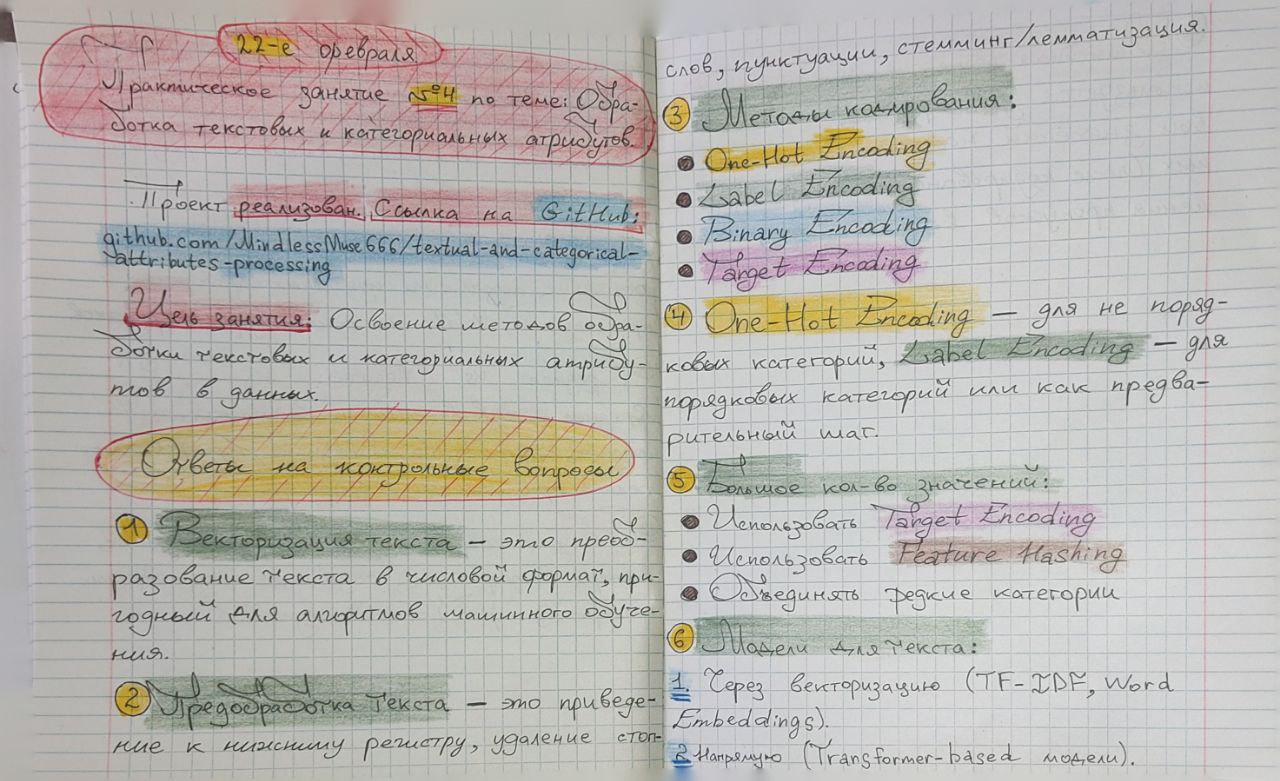 22-е февраля
Практическое занятие №4 по теме: Обра-
ботка текстовых и категориальных атрибутов.
Проект реализован. Ссылка на GitHub:
github.com/MindlessMuse666/textual-and-categorical-
attributes-processing
Цель занятия: Освоение методов обра-
ботки текстовых и категориальных атрибу-
тов в данных.
Ответы на контрольные вопросы
1 Векторизация текста – это преоб-
разование текста в числовой формат, при-
годный для алгоритмов машинного обуче-
ния.
2 Предобработка текста – это приведе-
ние к нижнему регистру, удаление стоп-
слов, пунктуации, стемминг/лемматизация.
3 Методы кодирования:
• One-Hot Encoding
• Label Encoding
• Binary Encoding
• Target Encoding
4 One-Hot Encoding – для не поряд-
ковых категорий, Label Encoding – для
порядковых категорий или как предва-
рительный шаг.
5 Большое кол-во значений:
• Использовать Target Encoding
• Использовать Feature Hashing
• Объединять редкие категории
6 Модели для текста:
1. Через векторизацию (TF-IDF, Word
Embeddings).
2 Напрямую (Transformer-based модели).